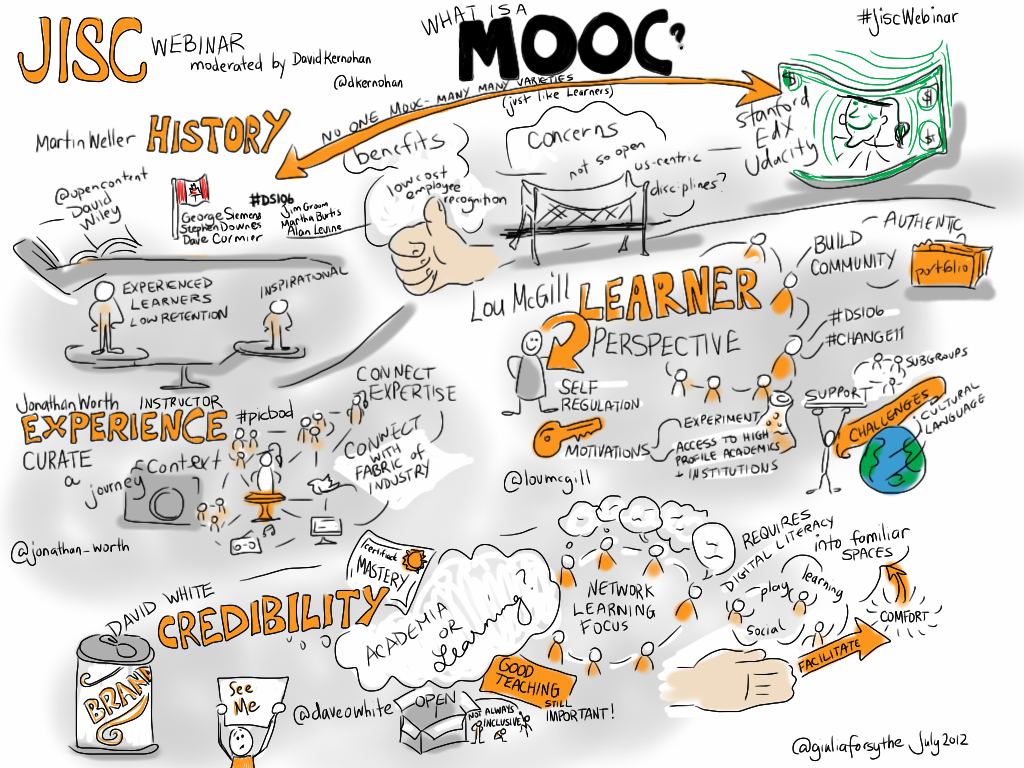 JISC WEBINAR
moderated by David Kernohan
@dkernohan
WHAT IS A
MOOC?
#jiscWebinar
NO ONE MOOC - MANY MANY VARIETIES
(just like Learners)
Martin Weller HISTORY
@opencontent
David
Wiley
#DS106
George Siemens
Stephen Downes
Dave Cormier
Jim Groom
Martha Burtis
Alan Levine
benefits
low cost
employee
recognition
concerns
not so open
us-centric
disciplines?
Stanford
EdX
Udacity
$
$
$
EXPERIENCED
LEARNERS
LOW RETENTION
INSPIRATIONAL
Lou McGill LEARNER
PERSPECTIVE
SELF
REGULATION
MOTIVATIONS
EXPERIMENT
ACCESS TO HIGH
PROFILE ACADEMICS
+ INSTITUTIONS
@loumcgill
BUILD
COMMUNITY
AUTHENTIC
portfolio
#DS106
#CHANGE11
SUBGROUPS
SUPPORT
CHALLENGES
CULTURAL
LANGUAGE
Jonathan Worth INSTRUCTOR
EXPERIENCE
#picbod
CURATE
a
journey
Context
CONNECT
EXPERTISE
CONNECT
WITH
FABRIC of
INDUSTRY
@jonathan_worth
DAVID WHITE
CREDIBILITY
certificate
MASTERY
BRAND
See
Me
@daveowhite
ACADEMIA
OR
Learning?
OPEN
NOT ALWAYS
INCLUSIVE
GOOD
TEACHING
STILL
IMPORTANT!
NETWORK
LEARNING
FOCUS
REQUIRES
DIGITAL LITERACY
play
learning
social
into familiar
SPACES
COMFORT
FACILITATE
@giuliaforsythe July 2012